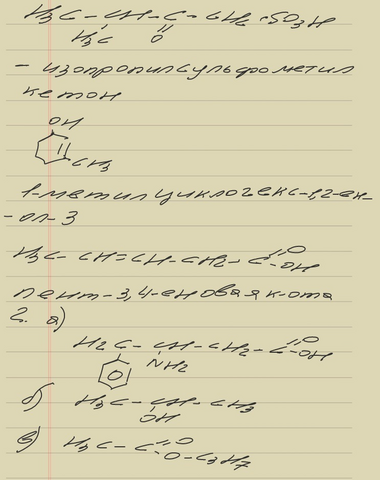 H3C – CH – C – CH2 · SO3H
H3C O
– изопропилсульфометил
кетон
OH
CH3
1-метилциклогекс-1,2-ен-
-ол-3
H3C – CH = CH – CH2 – C = O – OH
пент-3,4-еновая к-ота
2. а)
H2C – CH – CH2 – C = O – OH
NH2
б) H3C – CH – CH3
OH
в) H3C – C = O – O – C3H7